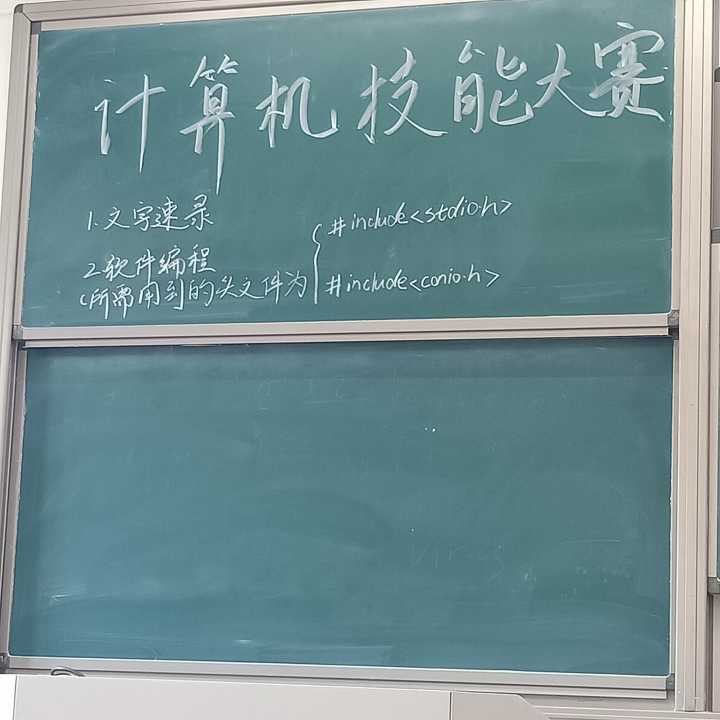 计算机技能大赛
1.文字速录
2.软件编程
(所需用到的头文件为
#include<stdio.h>
#include<conio.h>